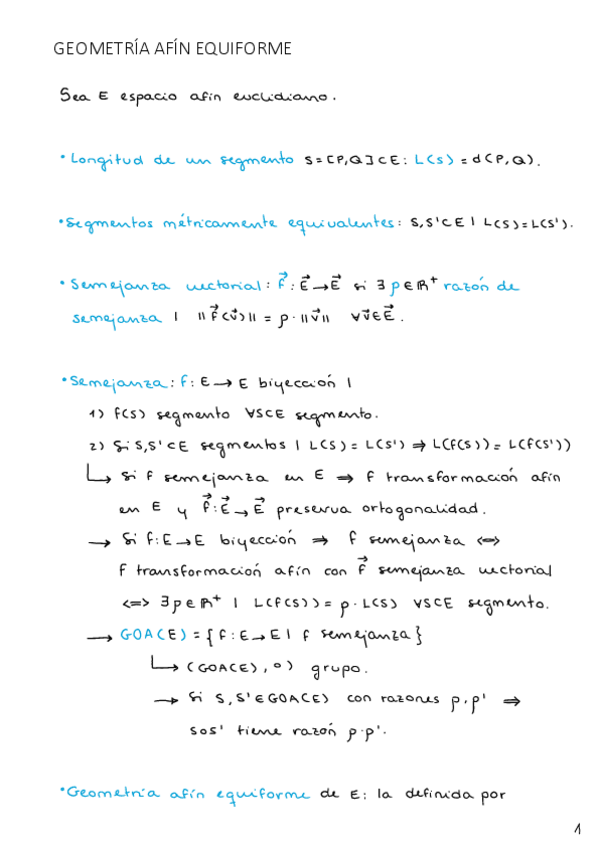 GEOMETRÍA AFÍN EQUIFORME
Sea E espacio afín euclidiano.
• Longitud de un segmento S=[P,Q]⊂E: L(S)=d(P,Q).
• Segmentos métricamente equivalentes: S,S'⊂E | L(S)=L(S').
• Semejanza vectorial: f⃗: E⃗→E⃗ si ∃ρ∈ℝ⁺ razón de
semejanza | ||f⃗(v⃗)|| = ρ·||v⃗|| ∀v⃗∈E⃗.
• Semejanza: f: E→E biyección |
1) f(S) segmento ∀S⊂E segmento.
2) Si S,S'⊂E segmentos | L(S)=L(S') ⇒ L(f(S))=L(f(S'))
↳ Si f semejanza en E ⇒ f transformación afín
en E y f⃗: E⃗→E⃗ preserva ortogonalidad.
→ Si f: E→E biyección ⇒ f semejanza ⇔
f transformación afín con f⃗ semejanza vectorial
⇔ ∃ρ∈ℝ⁺ | L(f(S))=ρ·L(S) ∀S⊂E segmento.
→ GOA(E)={f: E→E | f semejanza}
↳ (GOA(E),∘) grupo.
→ Si S,S'∈GOA(E) con razones ρ,ρ' ⇒
S∘S' tiene razón ρ·ρ'.
• Geometría afín equiforme de E: la definida por
1